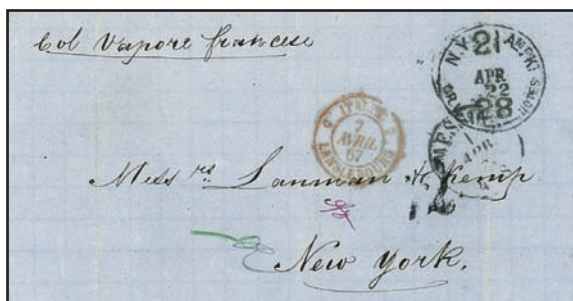 Col Vapore francese
N.Y. AM. PKT
21
APR
22
28
OR U.S. NOTES
ITALIE
7
AVRIL
67
LANSLEBOURG
MES
1
APR
Mess rs Lanman & Kemp
New York.